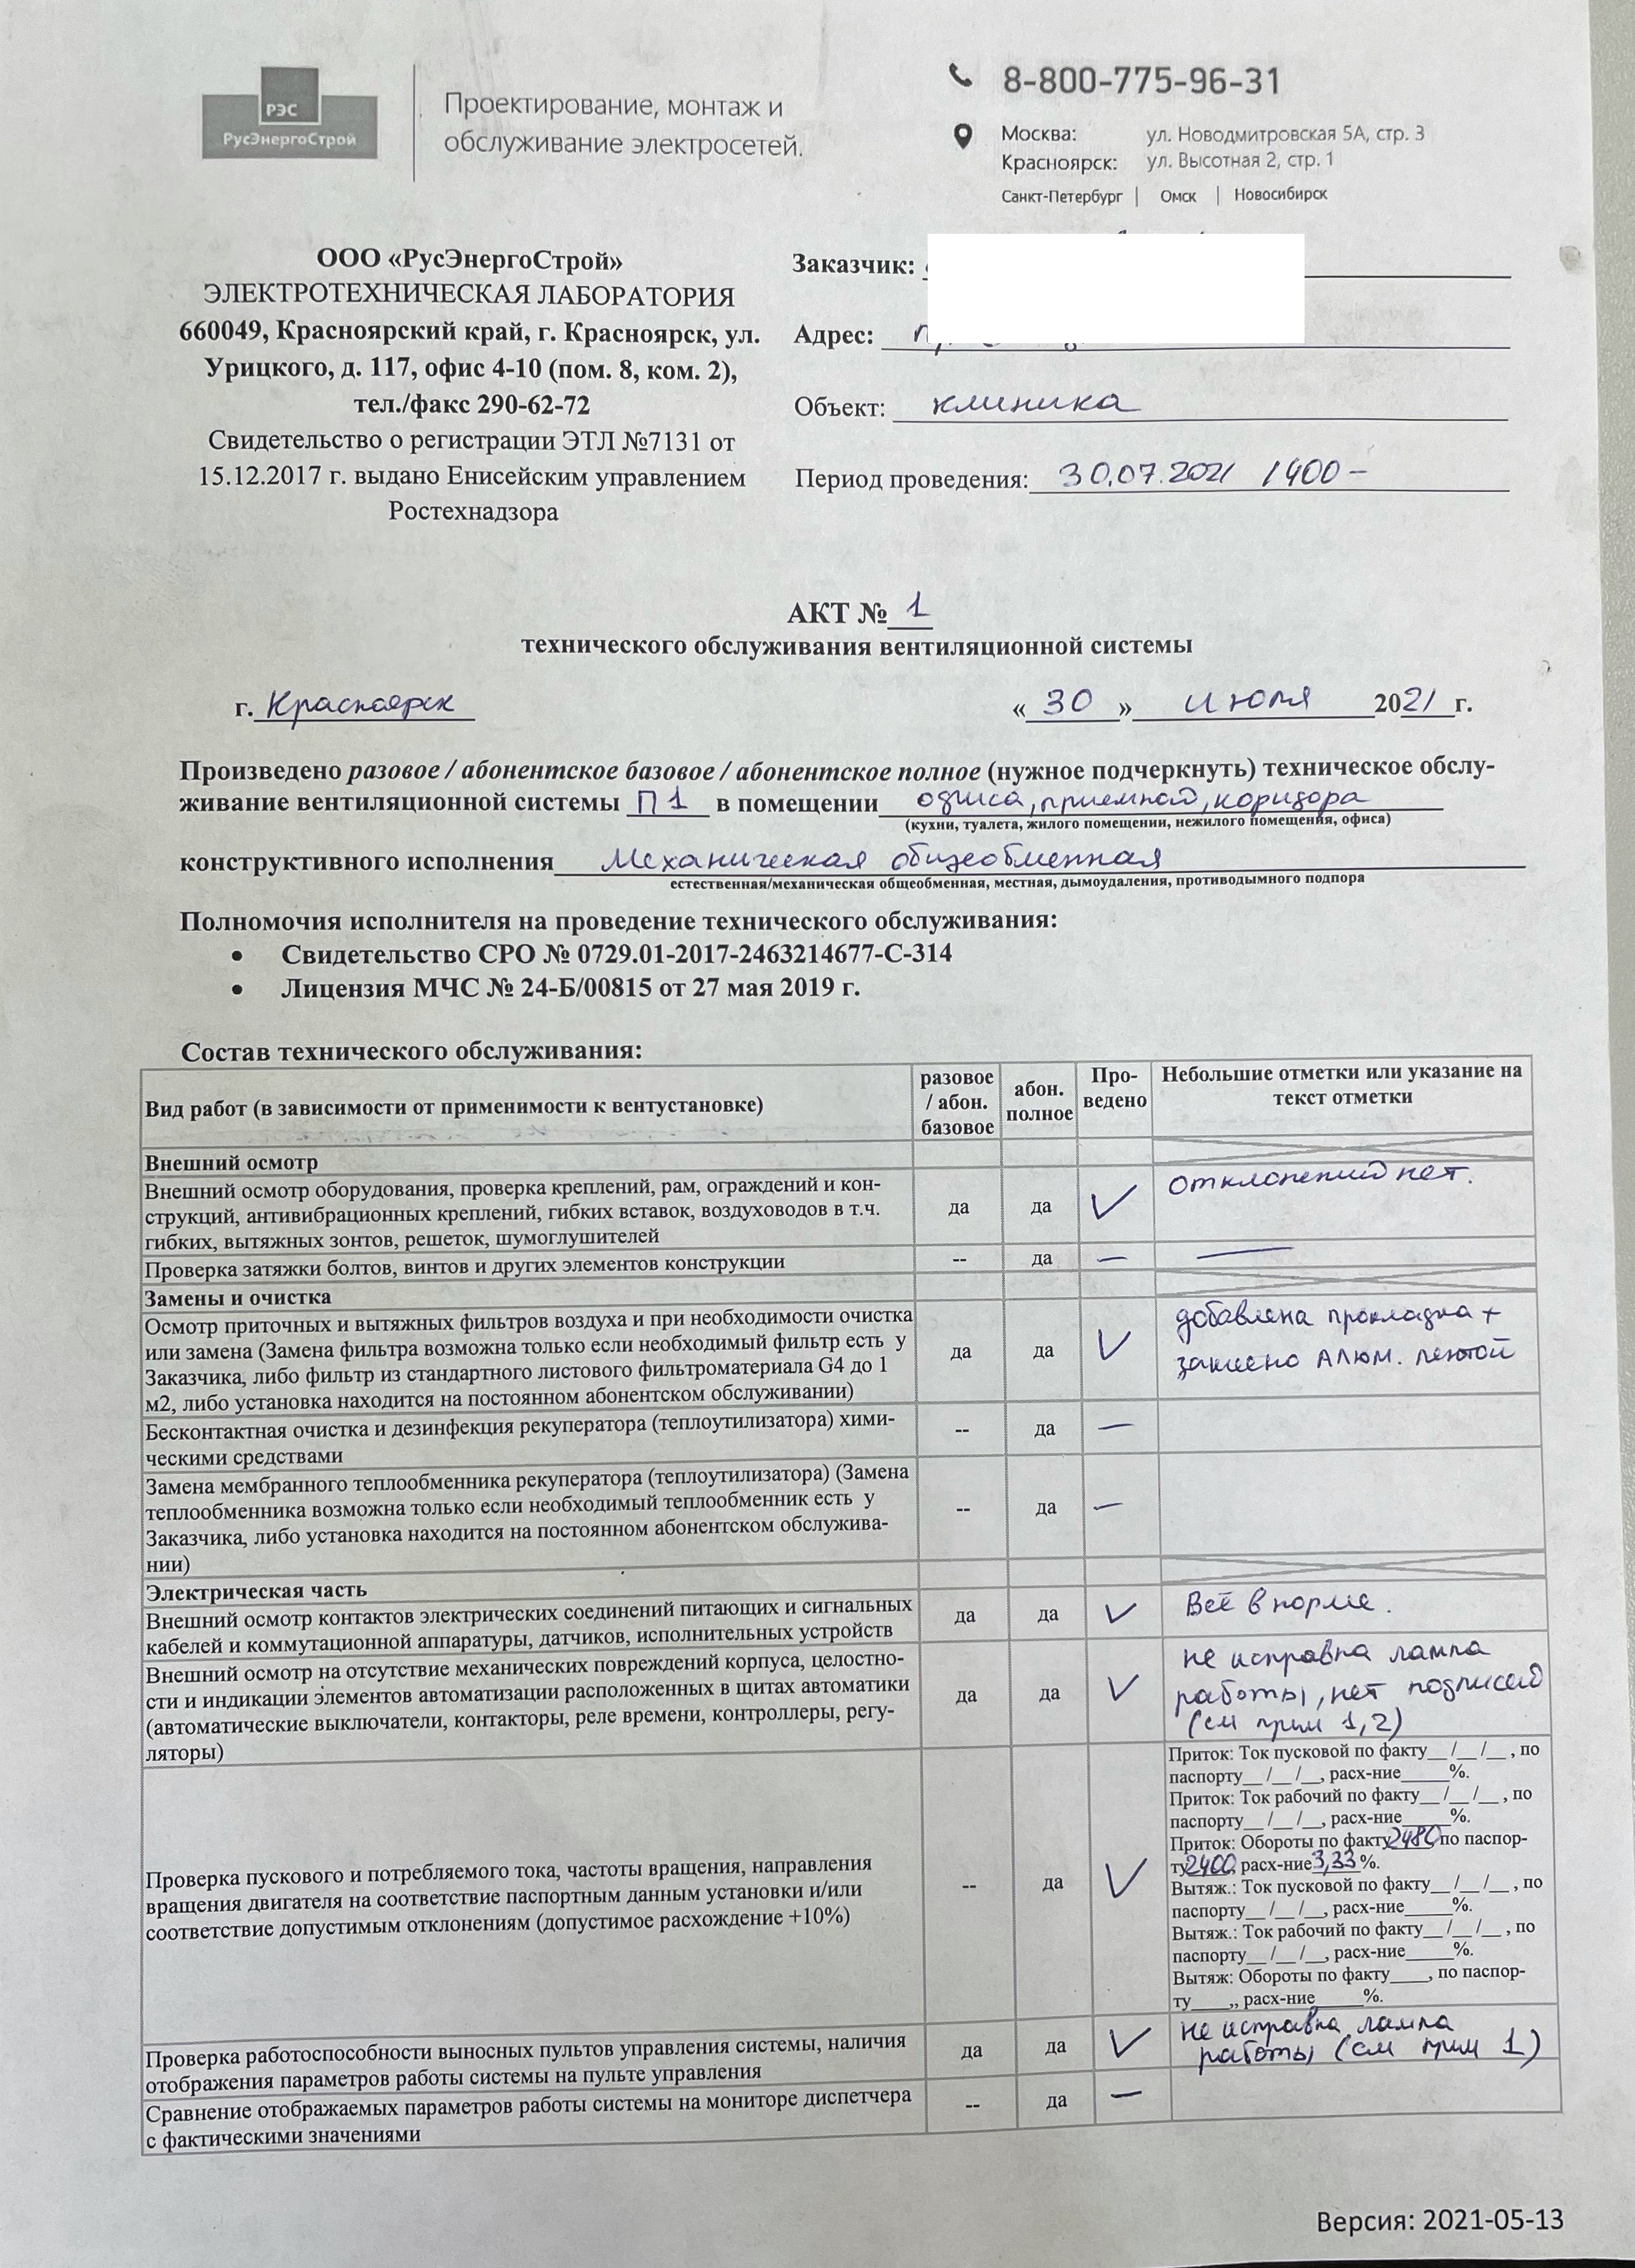 РЭС
РусЭнергоСтрой
Проектирование, монтаж и
обслуживание электросетей.
8-800-775-96-31
Москва: ул. Новодмитровская 5А, стр. 3
Красноярск: ул. Высотная 2, стр. 1
Санкт-Петербург | Омск | Новосибирск
ООО «РусЭнергоСтрой»
ЭЛЕКТРОТЕХНИЧЕСКАЯ ЛАБОРАТОРИЯ
660049, Красноярский край, г. Красноярск, ул.
Урицкого, д. 117, офис 4-10 (пом. 8, ком. 2),
тел./факс 290-62-72
Свидетельство о регистрации ЭТЛ №7131 от
15.12.2017 г. выдано Енисейским управлением
Ростехнадзора
Заказчик:
Адрес:
Объект: клиника
Период проведения: 30.07.2021 1400 –
АКТ № 1
технического обслуживания вентиляционной системы
г. Красноярск «30» июля 2021 г.
Произведено разовое / абонентское базовое / абонентское полное (нужное подчеркнуть) техническое обслу-
живание вентиляционной системы П1 в помещении офиса, приемной, коридора
(кухни, туалета, жилого помещении, нежилого помещения, офиса)
конструктивного исполнения Механическая общеобменная
естественная/механическая общеобменная, местная, дымоудаления, противодымного подпора
Полномочия исполнителя на проведение технического обслуживания:
• Свидетельство СРО № 0729.01-2017-2463214677-С-314
• Лицензия МЧС № 24-Б/00815 от 27 мая 2019 г.
Состав технического обслуживания:
Вид работ (в зависимости от применимости к вентустановке)
разовое
/ абон.
базовое
абон.
полное
Про-
ведено
Небольшие отметки или указание на
текст отметки
Внешний осмотр
Внешний осмотр оборудования, проверка креплений, рам, ограждений и кон-
струкций, антивибрационных креплений, гибких вставок, воздуховодов в т.ч.
гибких, вытяжных зонтов, решеток, шумоглушителей
да да ✓ отклонений нет.
Проверка затяжки болтов, винтов и других элементов конструкции -- да — —
Замены и очистка
Осмотр приточных и вытяжных фильтров воздуха и при необходимости очистка
или замена (Замена фильтра возможна только если необходимый фильтр есть у
Заказчика, либо фильтр из стандартного листового фильтроматериала G4 до 1
м2, либо установка находится на постоянном абонентском обслуживании)
да да ✓
добавлена прокладка +
АЛЮМ. лентой
Бесконтактная очистка и дезинфекция рекуператора (теплоутилизатора) хими-
ческими средствами
-- да —
Замена мембранного теплообменника рекуператора (теплоутилизатора) (Замена
теплообменника возможна только если необходимый теплообменник есть у
Заказчика, либо установка находится на постоянном абонентском обслужива-
нии)
-- да —
Электрическая часть
Внешний осмотр контактов электрических соединений питающих и сигнальных
кабелей и коммутационной аппаратуры, датчиков, исполнительных устройств
да да ✓ Всё в норме.
Внешний осмотр на отсутствие механических повреждений корпуса, целостно-
сти и индикации элементов автоматизации расположенных в щитах автоматики
(автоматические выключатели, контакторы, реле времени, контроллеры, регу-
ляторы)
да да ✓
не исправна лампа
работы, нет подписей
(см прим 1,2)
Проверка пускового и потребляемого тока, частоты вращения, направления
вращения двигателя на соответствие паспортным данным установки и/или
соответствие допустимым отклонениям (допустимое расхождение +10%)
-- да ✓
Приток: Ток пусковой по факту__/__/__, по
паспорту__/__/__, расх-ние_____%.
Приток: Ток рабочий по факту__/__/__, по
паспорту__/__/__, расх-ние_____%.
Приток: Обороты по факту 2480 по паспор-
ту 2400, расх-ние 3,33 %.
Вытяж.: Ток пусковой по факту__/__/__, по
паспорту__/__/__, расх-ние_____%.
Вытяж.: Ток рабочий по факту__/__/__, по
паспорту__/__/__, расх-ние_____%.
Вытяж: Обороты по факту____, по паспор-
ту____,, расх-ние_____%.
Проверка работоспособности выносных пультов управления системы, наличия
отображения параметров работы системы на пульте управления
да да ✓
не исправна лампа
работы (см прим 1)
Сравнение отображаемых параметров работы системы на мониторе диспетчера
с фактическими значениями
-- да —
Версия: 2021-05-13